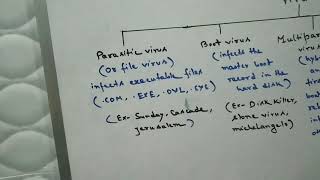 Parasitic virus
(Or file virus)
infects executable files
(.COM, .EXE, .OVL, .SYS)
(Ex- Sunday, Cascade,
jerusalem)
Boot virus
(infects the
master boot
record in the
hard disk)
(Ex- Disk Killer,
stone virus,
michelangelo)